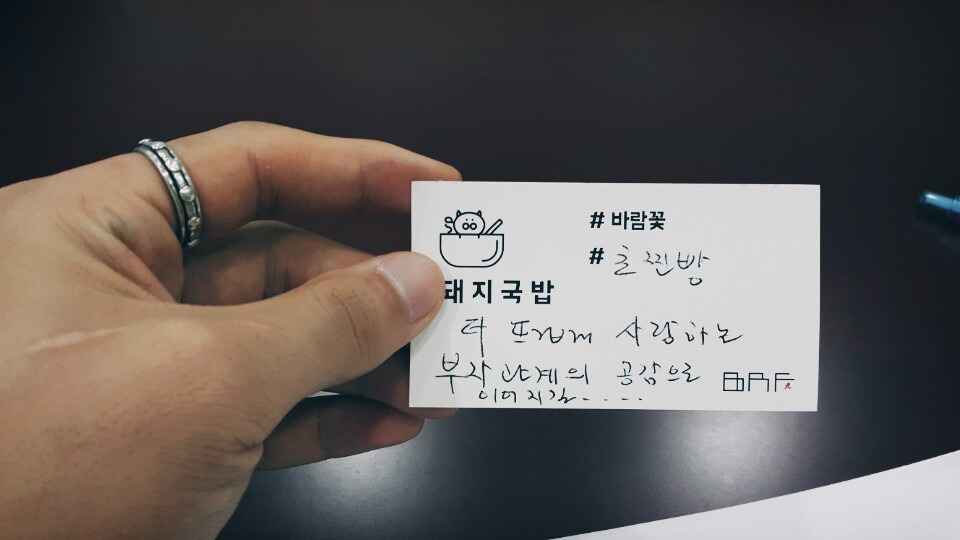 # 바람꽃
# 호찐방
돼지국밥
더 뜨겁게 사랑하는
부자관계의 공감으로
이어지길.....
BAF